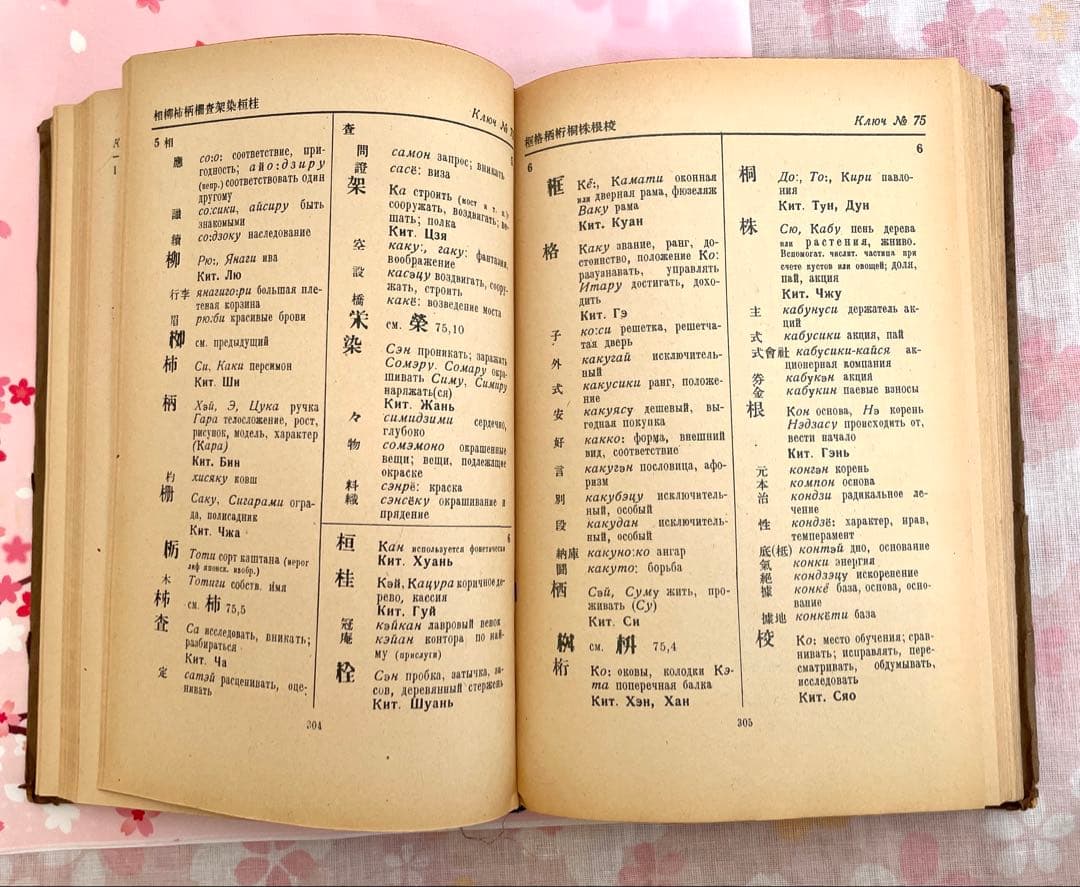 相柳柿柄柵査架染桓桂
Ключ № 7
5 相
應 со:о: соответствие, при-
годность; айо:дзиру
(непр.) соответствовать один
другому
識 со:сики, айсиру быть
знакомыми
續 со:дзоку наследование
柳 Рю:, Янаги ива
Кит. Лю
行李 янагиго:ри большая пле-
тевая корзина
眉 рю:би красивые брови
см. предыдущий
柿 Си, Каки персимон
Кит. Ши
柄 Хэй, Э, Цука ручка
Гара телосложение, рост,
рисунок, модель, характер
(Кара)
Кит. Бин
杓 хисяку ковш
柵 Саку, Сигарами огра-
да, полисадник
Кит. Чжа
栃 Тоти сорт каштана (иерог
лиф японск. изобр.)
木 Тотиги собств. имя
柿 см. 柿 75,5
査 Са исследовать, вникать;
разбираться
Кит. Ча
定 сатэй расценивать, оце-
нивать
304
査
問 самон запрос; вникать
證 сасё: виза
架 Ка строить (мост и т. д.)
сооружать, воздвигать; ве-
шать; полка
Кит. Цзя
空 каку:, гаку: фантазия,
воображение
設 касэцу воздвигать, соору-
жать, строить
橋 какё: возведение моста
栄 см. 榮 75,10
染 Сэн проникать; заражать
Сомэру. Сомару окра-
шивать Симу, Симиру
наряжать(ся)
Кит. Жань
々 симидзими сердечно,
глубоко
物 сомэмоно окрашенные
вещи; вещи, подлежащие
окраске
料 сэнрё: краска
織 сэнсёку окрашивание и
прядение
6
桓 Кан используется фонетически
Кит. Хуань
桂 Кэй, Кацура коричное де-
рево, кассия
Кит. Гуй
冠 кэйкан лавровый венок
庵 кэйан контора по най-
му (прислуги)
栓 Сэн пробка, затычка, за-
сов, деревянный стержень
Кит. Шуань
框格栖桁桐株根校
Ключ № 75
6
框 Кё:, Камати оконная
или дверная рама, фюзеляж
Ваку рама
Кит. Куан
格 Каку звание, ранг, до-
стоинство, положение Ко:
разузнавать, управлять
Итару достигать, дохо-
дить
Кит. Гэ
子 ко:си решетка, решетча-
тая дверь
外 какугай исключитель-
ный
式 какусики ранг, положе-
ние
安 какуясу дешевый, вы-
годная покупка
好 какко: форма, внешний
вид, соответствие
言 какугэн пословица, афо-
ризм
別 какубэцу исключитель-
ный, особый
段 какудан исключитель-
ный, особый
納庫 какуно:ко ангар
鬪 какуто: борьба
栖 Сэй, Суму жить, про-
живать (Су)
Кит. Си
см. 枡 75,4
桁 Ко: оковы, колодки Кэ-
та поперечная балка
Кит. Хэн, Хан
305
6
桐 До:, То:, Кири павло-
ния
Кит. Тун, Дун
株 Сю, Кабу пень дерева
или растения, жниво.
Вспомогат. числит. частица при
счете кустов или овощей; доля,
пай, акция
Кит. Чжу
主 кабунуси держатель ак-
ций
式 кабусики акция, пай
式會社 кабусики-кайся ак-
ционерная компания
券 кабукэн акция
金 кабукин паевые взносы
根 Кон основа, Нэ корень
Нэдзасу происходить от,
вести начало
Кит. Гэнь
元 конгэн корень
本 компон основа
治 кондзи радикальное ле-
чение
性 кондзё: характер, нрав,
темперамент
底(柢) контэй дно, основание
氣 конки энергия
絕 кондзэцу искоренение
據 конкё база, основа, осно-
вание
據地 конкёти база
校 Ко: место обучения; срав-
нивать; исправлять, пере-
сматривать, обдумывать,
исследовать
Кит. Сяо